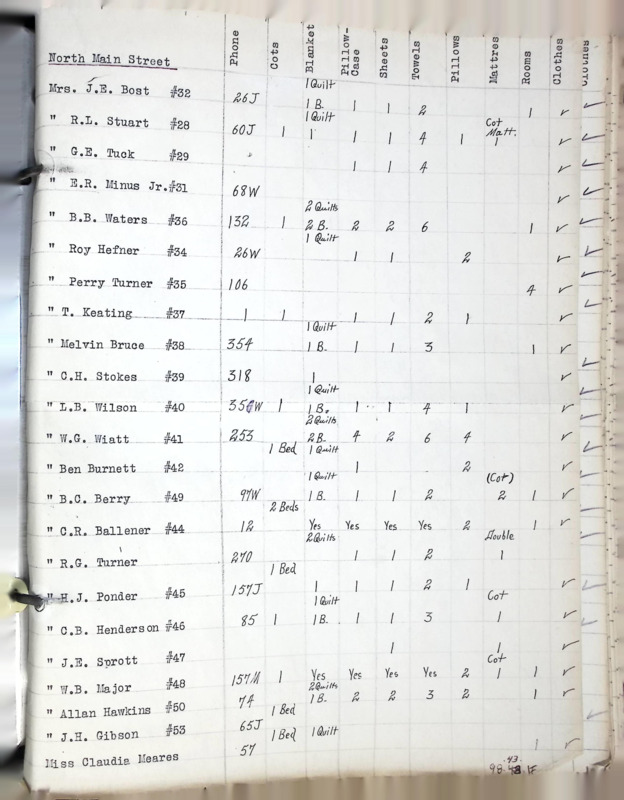 North Main Street Phone Cots Blanket Pillow-Case Sheets Towels Pillows Mattres Rooms Clothes
1 Quilt
Mrs. J.E. Bost #32 26J 1 B. 1 1 2 1 ✓
1 Quilt Cot Matt.
" R.L. Stuart #28 60J 1 1 1 1 4 1 1 ✓
" G.E. Tuck #29 1 1 4 ✓
" E.R. Minus Jr.#31 68W ✓
2 Quilts
" B.B. Waters #36 132 1 2 B. 2 2 6 1 ✓
1 Quilt
" Roy Hefner #34 26W 1 1 2 ✓
" Perry Turner #35 106 4 ✓
" T. Keating #37 1 1 1 1 2 1 ✓
1 Quilt
" Melvin Bruce #38 354 1 B. 1 1 3 1 ✓
" C.H. Stokes #39 318 1 ✓
1 Quilt
" L.B. Wilson #40 356W 1 1 B. 1 1 4 1 ✓
2 Quilts
" W.G. Wiatt #41 253 2 B. 4 2 6 4 ✓
1 Bed 1 Quilt
" Ben Burnett #42 1 2
1 Quilt (Cot)
" B.C. Berry #49 97W 1 B. 1 1 2 2 1 ✓
2 Beds
" C.R. Ballener #44 12 Yes Yes Yes Yes 2 1 ✓
2 Quilts Double
" R.G. Turner 270 1 1 2 1
1 Bed
" H.J. Ponder #45 157J 1 1 1 2 1 ✓
1 Quilt Cot
" C.B. Henderson #46 85 1 1 B. 1 1 3 1 ✓
" J.E. Sprott #47 1 1 ✓
Cot
" W.B. Major #48 157M 1 Yes Yes Yes Yes 2 1 1 ✓
2 Quilts
" Allan Hawkins #50 74 1 B. 2 2 3 2 1 ✓
1 Bed
" J.H. Gibson #53 65J 1 Bed 1 Quilt
Miss Claudia Meares 57 1 ✓